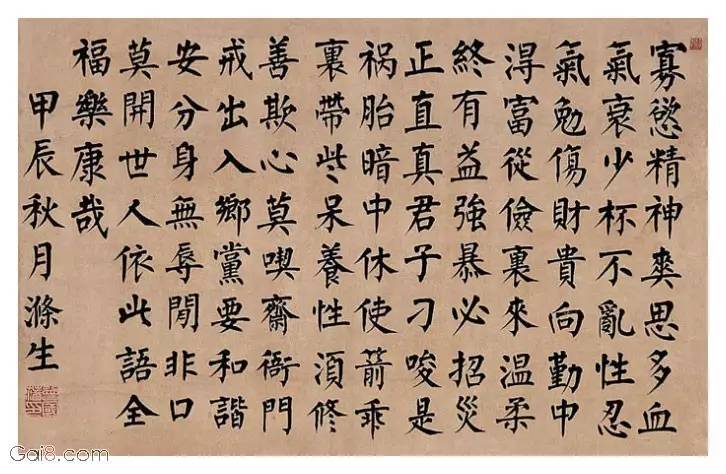 寡慾精神爽思多血
氣衰少杯不亂性忍
氣勉傷財貴向勤中
淂富從儉裏來温柔
終有益強暴必招災
正直真君子刁唆是
祸胎暗中休使箭乖
裏帶些呆養性須修
善欺心莫喫齋衙門
戒出入鄉黨要和諧
安分身無辱閒非口
莫開世人依此語全
福樂康哉
甲辰秋月滌生
Gai8.com